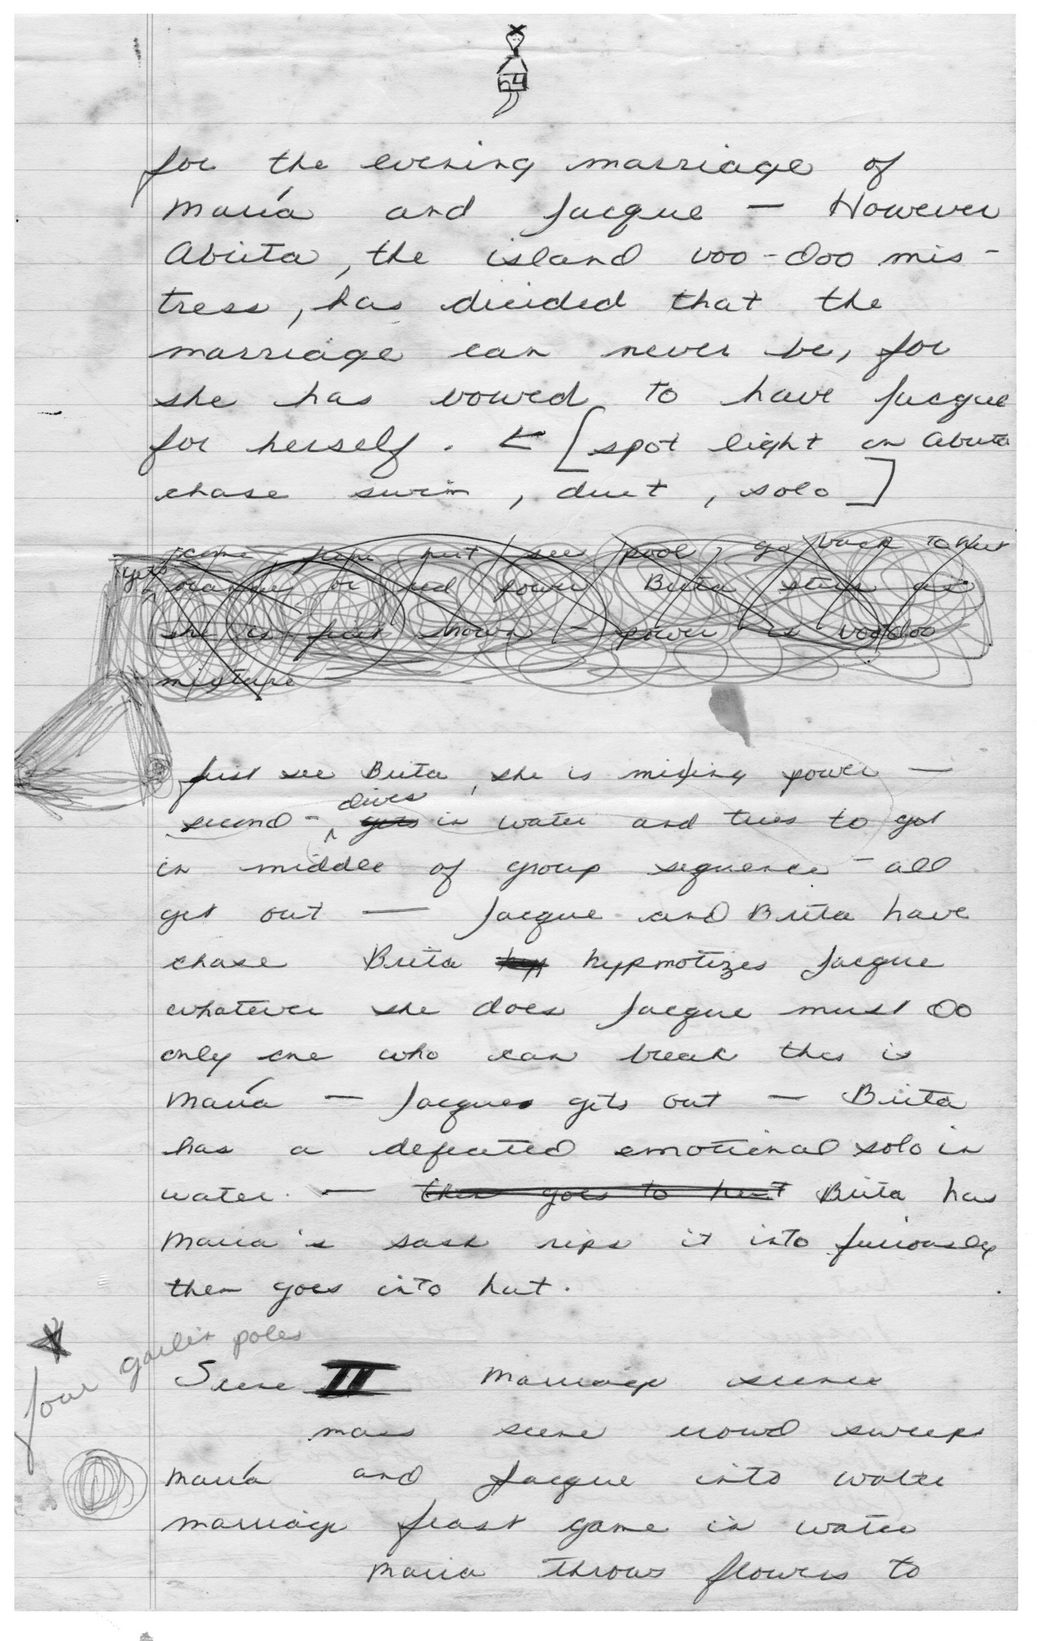 64
for the evening marriage of
María and Jacque — However
Abrita, the island voo-doo mis-
tress, has decided that the
marriage can never be, for
she has vowed to have Jacque
for herself. ← [spot light on Abrita
chase swim, duet, solo]
come from hut, see pool, go back to hut
Brita
she is first shown — power is voodoo
mixture
first see Brita, she is mixing power —
second - dives gets in water and tries to get
in middle of group sequence - all
get out — Jacque and Brita have
chase Brita hyp hypmotizes Jacque
whatever she does Jacque must do
only one who can break this is
María — Jacques gets out — Brita
has a defeated emotional solo in
water. — then goes to hut Brita has
Maria's sash rips it into furiously
then goes into hut.
four garlin poles
Scene II Marriage scene
mass scene crowd sweeps
María and Jacque into water
marriage feast game in water
Maria throws flowers to